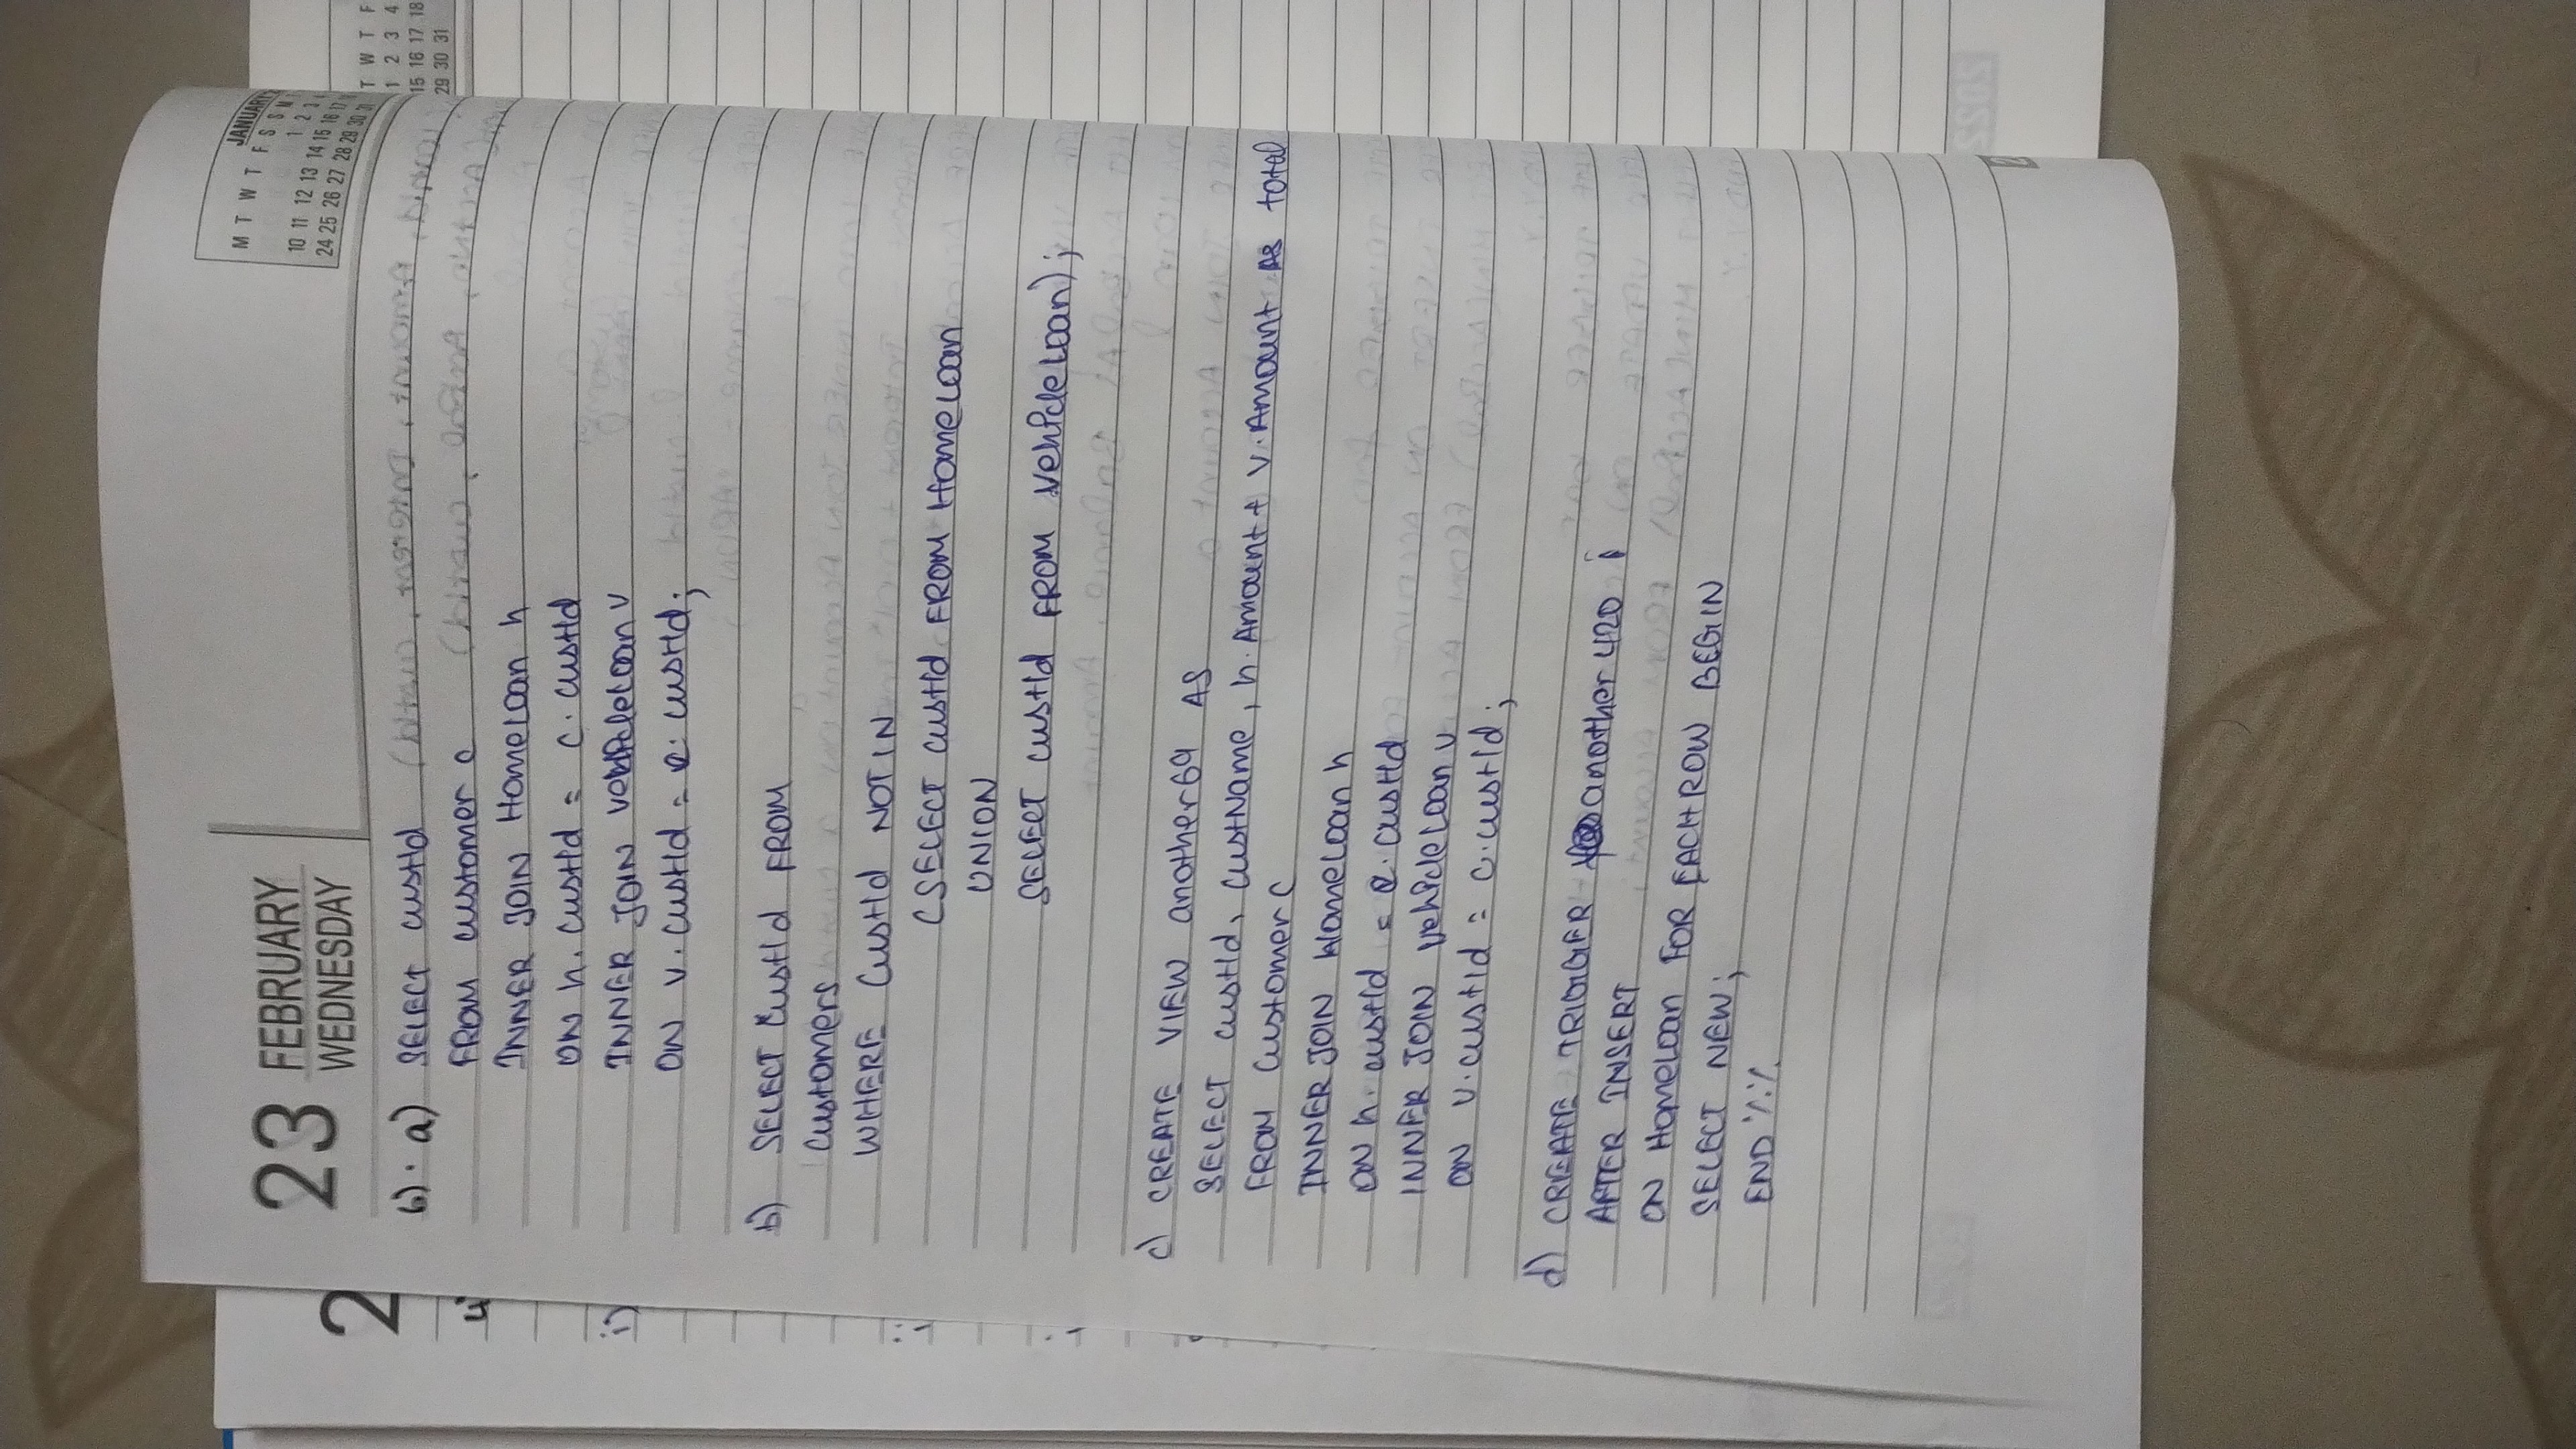 23 FEBRUARY
WEDNESDAY
JANUARY
M T W T F S S M
1 2 3
10 11 12 13 14 15 16 17
24 25 26 27 28 29 30 31
T W T F
1 2 3 4
15 16 17 18
29 30 31
6). a) SELECT custId
FROM customer c
INNER JOIN HomeLoan h
ON h. custId = c. custId
INNER JOIN vehicleLoan v
ON v. custId = c. custId;
b) SELECT custId FROM
customers
WHERE CustId NOT IN
(SELECT custId FROM HomeLoan
UNION
SELECT custId FROM VehicleLoan);
c) CREATE VIEW another69 AS
SELECT custId, custName, h.Amount + v.Amount AS total
FROM Customer C
INNER JOIN HomeLoan h
ON h. custId = c. custId
INNER JOIN vehicleLoan v
ON v.custId = c.custId;
d) CREATE TRIGGER another420 i
AFTER INSERT
ON HomeLoan FOR EACH ROW BEGIN
SELECT NEW;
END %%
2
2022